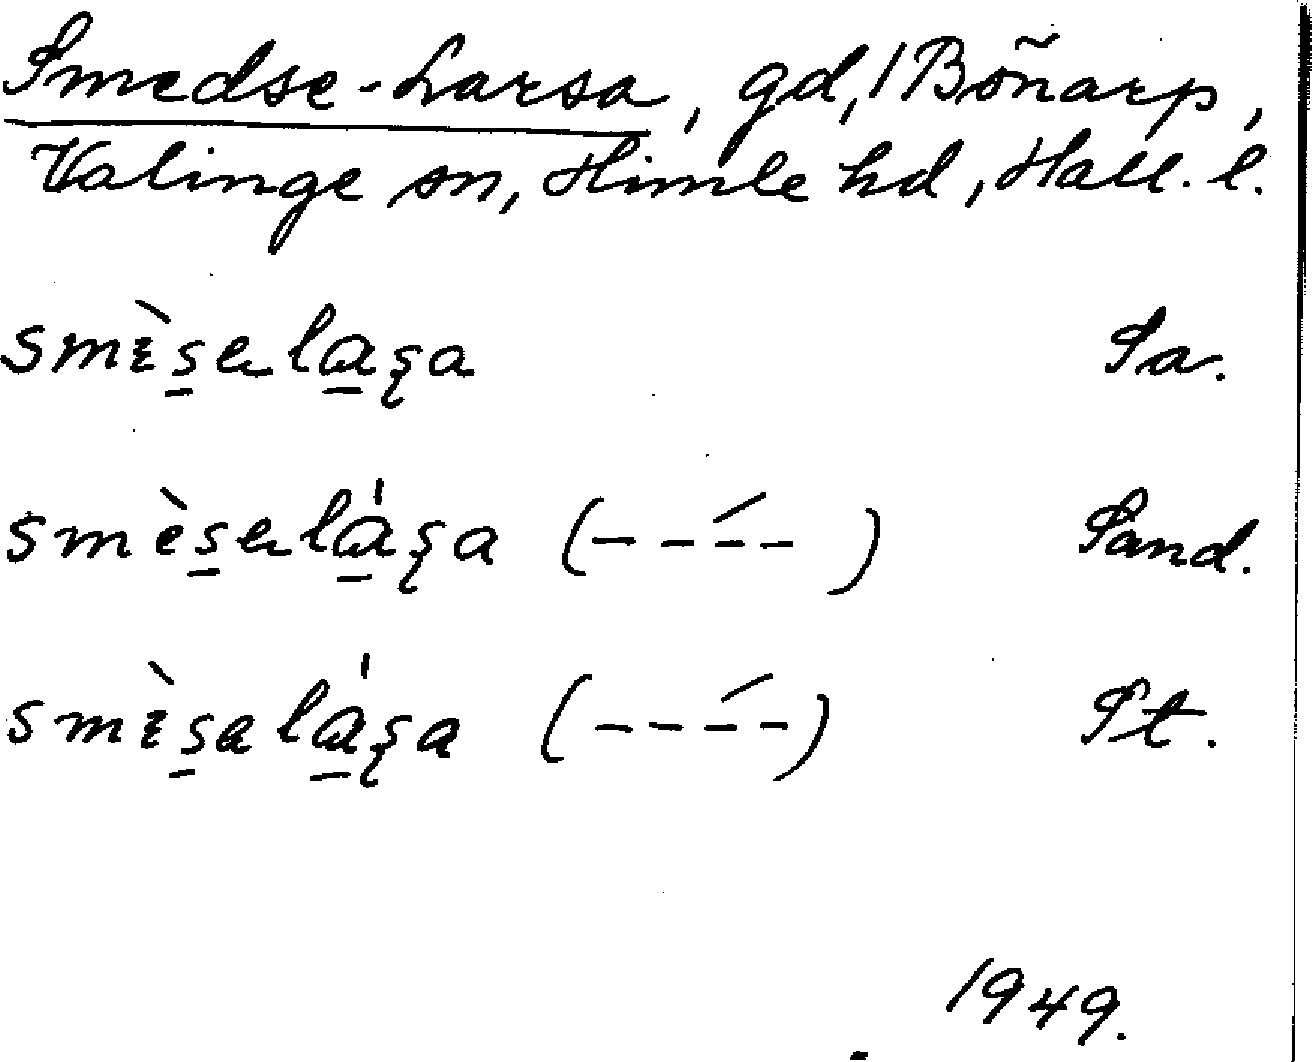 Smedse-Larsa, gd, 1 Böñarp,
Valinge sn, Himle hd, Hall. l.
smèsəlaʂa Sa.
smèsəláʂa (– – –́ –) Sand.
smèsaláʂa (– – –́ –) St.
1949.